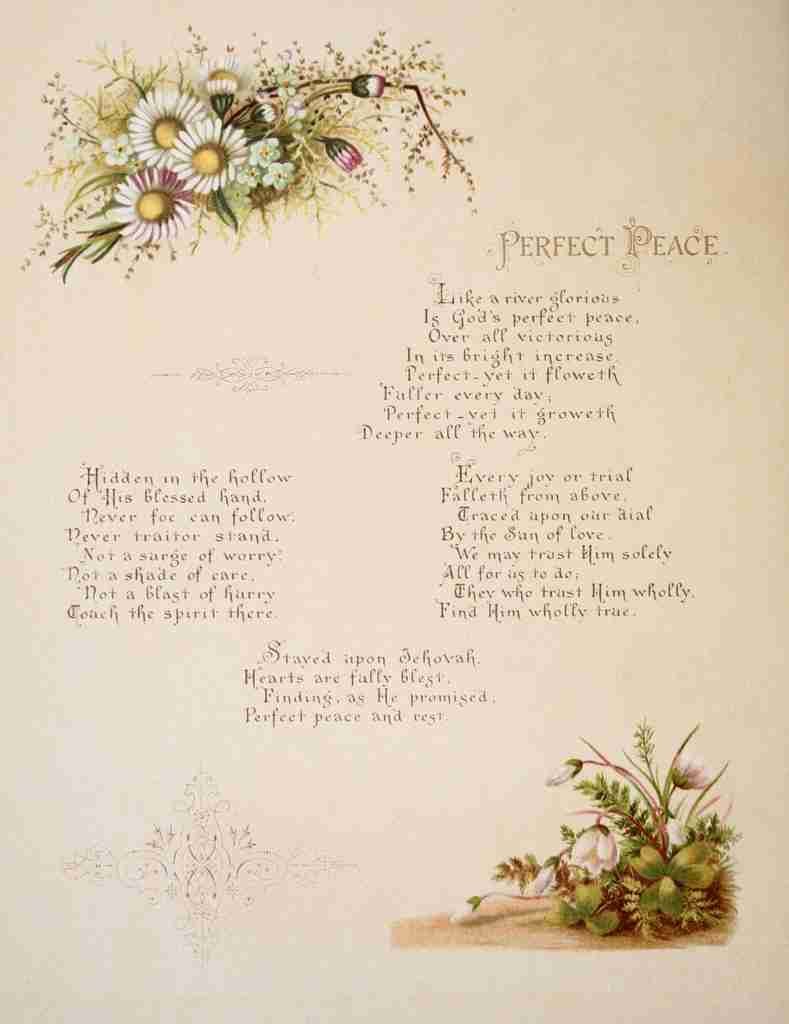 PERFECT PEACE.
Like a river glorious
Is God's perfect peace,
Over all victorious
In its bright increase.
Perfect-yet it floweth
Fuller every day;
Perfect-yet it groweth
Deeper all the way.
Hidden in the hollow
Of His blessed hand,
Never foe can follow,
Never traitor stand,
Not a surge of worry,
Not a shade of care,
Not a blast of hurry
Touch the spirit there.
Every joy or trial
Falleth from above,
Traced upon our dial
By the Sun of love.
We may trust Him solely
All for us to do;
They who trust Him wholly,
Find Him wholly true.
Stayed upon Jehovah,
Hearts are fully blest,
Finding, as He promised,
Perfect peace and rest.